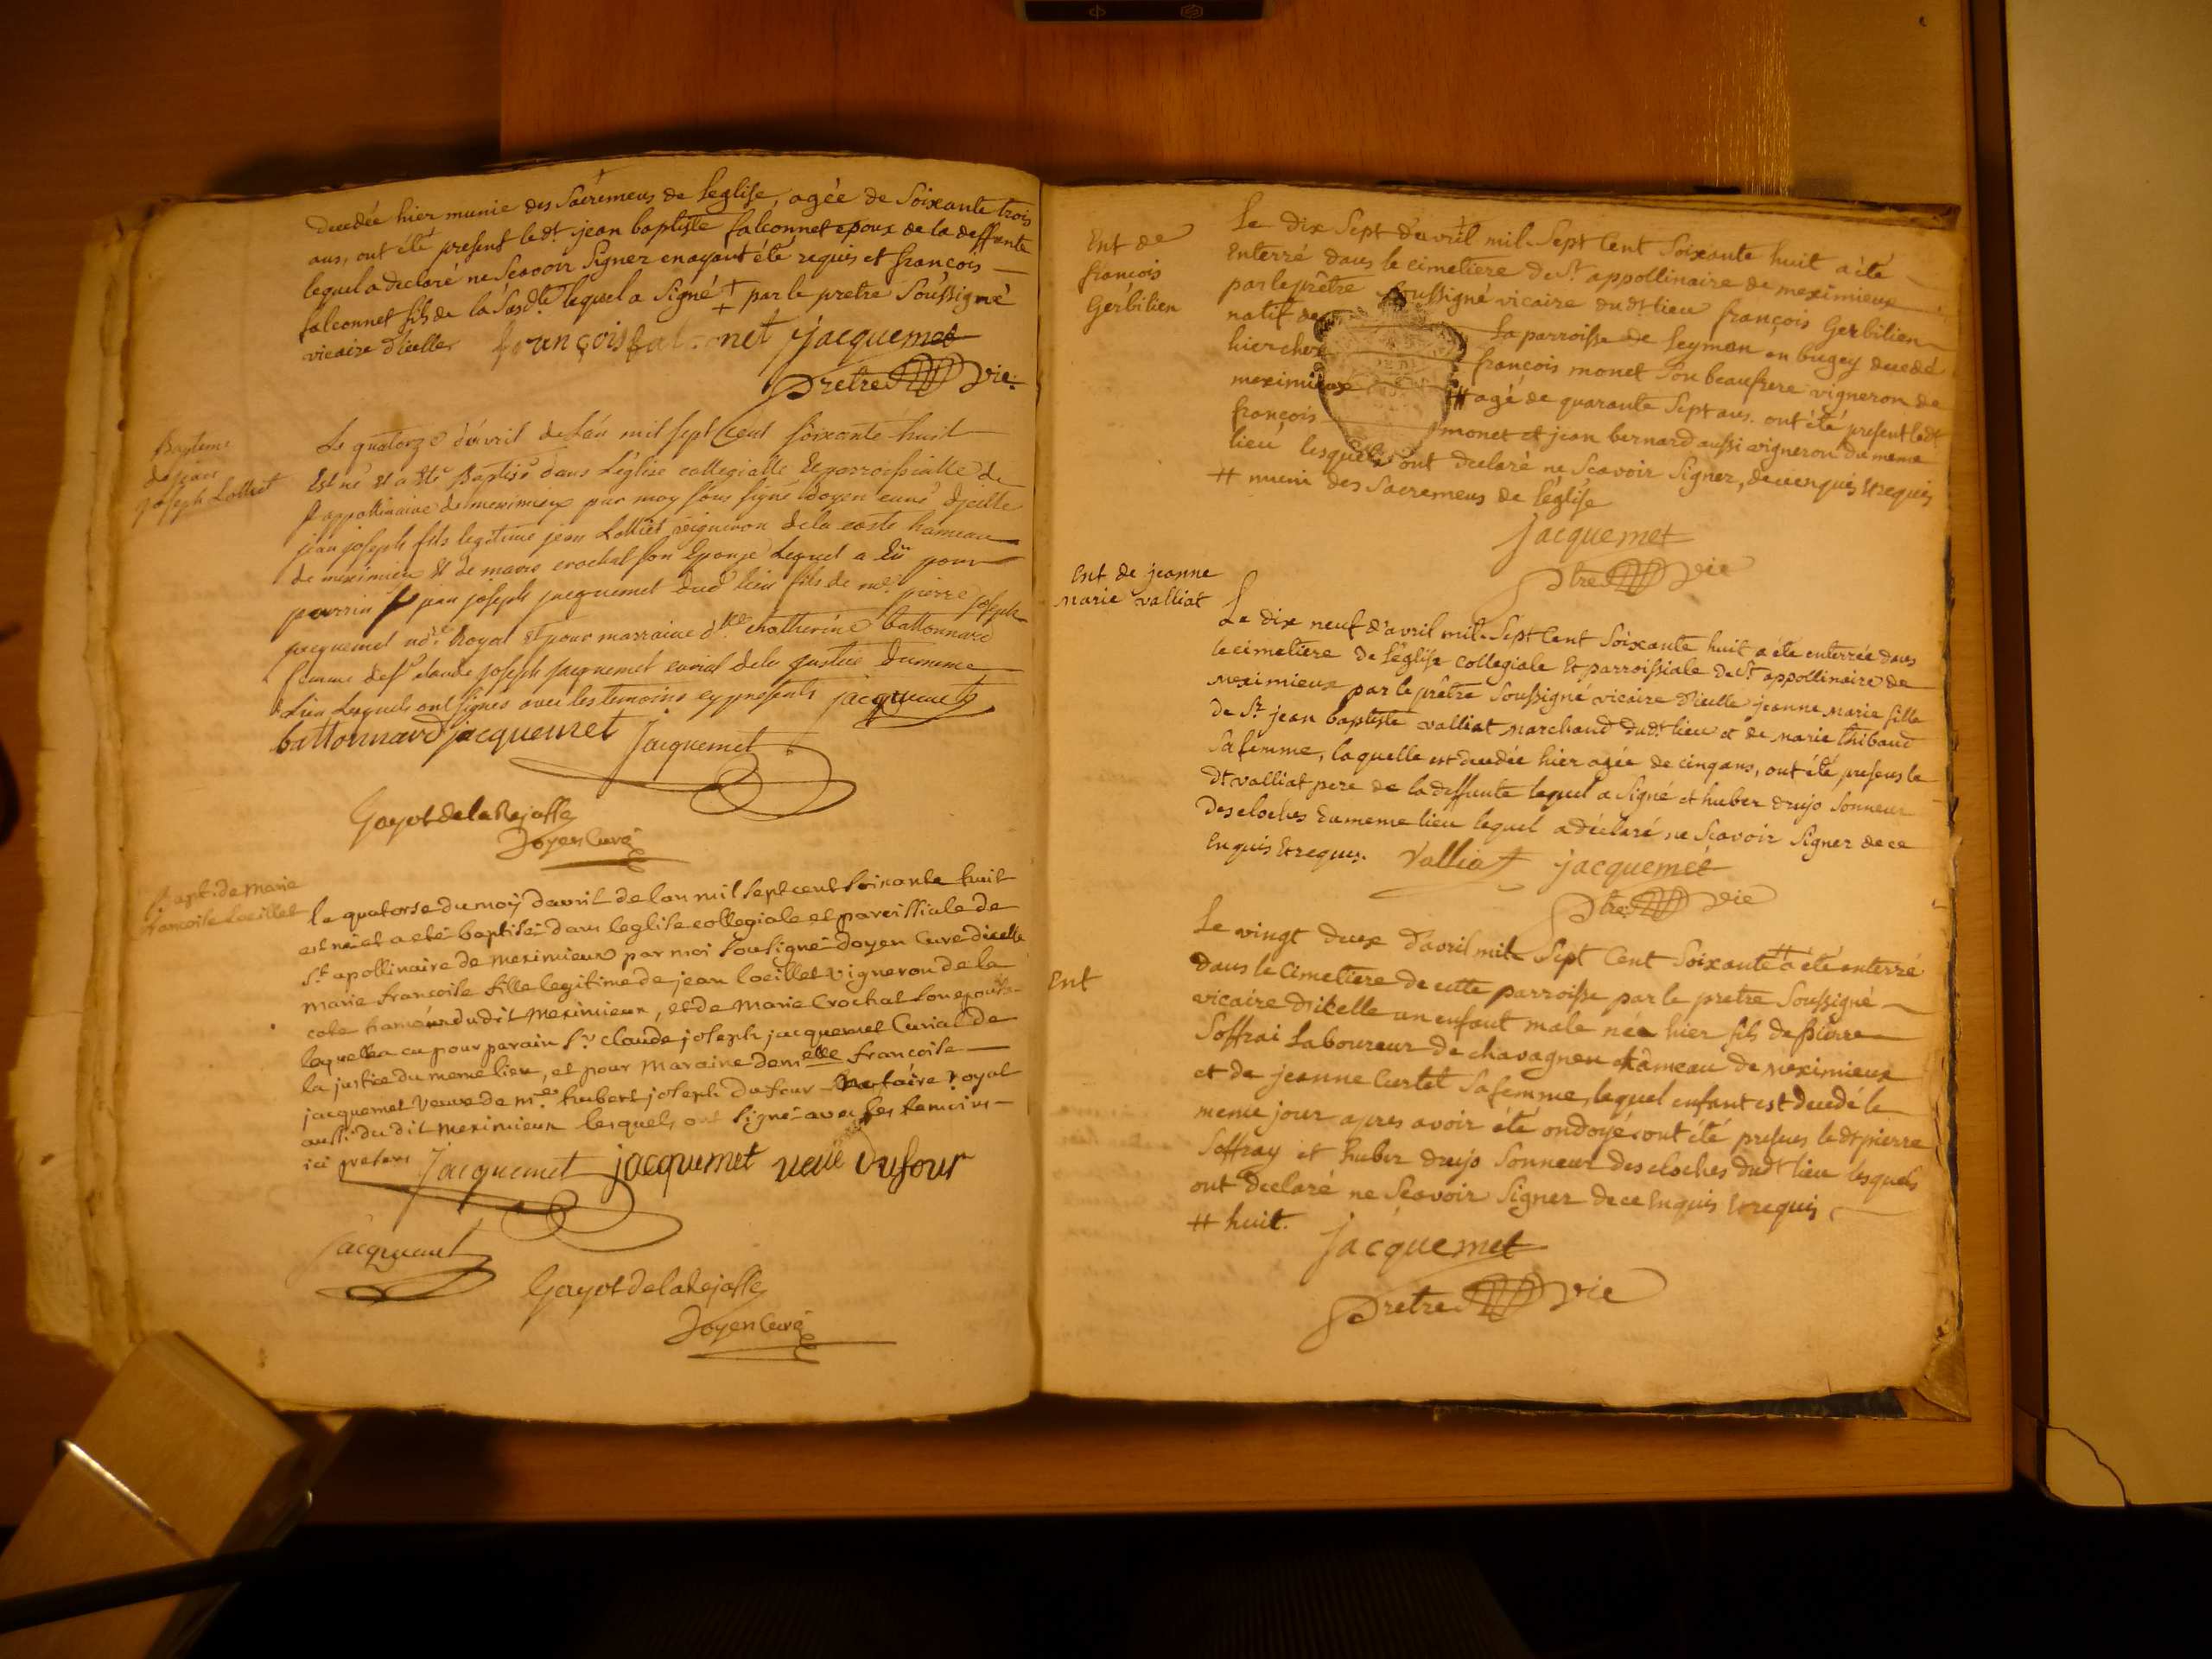 decedée hier munie des Sacremens de l'eglise, agée de Soixante trois
ans, ont été present le dt jean baptiste falconnet epoux de la deffunte
lequel a declaré ne Scavoir Signer en ayant été requis et françois
falconnet fils de la Susdte lequel a Signé ‡ par le pretre Soussigné
vicaire d'icelle françois falconnet jacquemet
Pretre vic.
Bapteme
de jean
joseph Lolliet
Le quatorze d'avril de l'an mil sept Cent soixante huit
Est né et a été Baptisé dans L'église collegialle et parroissialle de
st appollinaire de meximieux par moy sous signé doyen curé d'jcelle
jean joseph fils legitime jean Lolliet vigneron de la coste hameau
de meximieux et de marie crochat son Epouse Lequel a Eü pour
parrin jean joseph jacquemet dud lieu fils de me pierre joseph
jacquemet nore Royal et pour marraine dlle catherine battonnard
femme de sr claude joseph jacquemet curial de la justice du meme
Lieu Lesquels ont signés avec les temoins cy presents jacquemet
battonnard jacquemet jacquemet
Gayot de la Rejasse
Doyen Curé
Bapt. de Marie
francoise Loeillet
le quatorse du moÿ d'avril de l'an mil sept cent soixante huit
est né et a eté baptisée dans l'eglise collegiale et paroissiale de
St apollinaire de meximieux par moi sousigné doyen Curé d'icelle
marie francoise fille legitime de jean loeillet vigneron de la
cote hameau du dit meximieux, et de Marie Crochat son epouse
laquelle a eu pour parain Sr claude joseph jacquemet Curial de
la justice du meme lieu, et pour Maraine demelle francoise
jacquemet veuve de me hubert joseph dufour notaire royal
aussi du dit meximieux lesquels ont signé avec les temoins
ici presens Jacquemet jacquemet veuve Dufour
jacquemet
Gayot de la Rejasse
Doyen Curé
Ent de
françois
Gerbilien
Le dix Sept d'avril mil Sept Cent Soixante huit a été
Enterré dans le cimetiere de St appollinaire de meximieux
par le prêtre Soussigné vicaire du dt lieu françois Gerbilien
natif de la parroisse de Leyman en bugey decedé
hier chez françois monet Son beaufrere vigneron de
meximieux # agé de quarante Sept ans. ont été present le dt
françois monet et jean bernard aussi vigneron du meme
lieu lesquels ont declaré ne Scavoir Signer, de ce enquis et requis
# muni des Sacremens de l'église
jacquemet
Ptre vic
Ent de jeanne
Marie valliat
Le dix neuf d'avril mil Sept Cent Soixante huit a été enterrée dans
le cimetiere de l'église Collegiale Et parroissiale de St appollinaire de
Meximieux par le prêtre Soussigné vicaire d'icelle jeanne Marie fille
de Sr jean baptiste valliat Marchand du dt lieu et de Marie Thibaud
Sa femme, laquelle est decedée hier agée de cinq ans, ont été presens le
dt valliat pere de la deffunte lequel a Signé et huber drujo Sonneur
Des cloches du meme lieu lequel a déclaré ne Scavoir Signer de ce
Enquis Et requis. Valliat jacquemet
Ptre vic
Ent
Le vingt deux d'avril mil Sept Cent Soixante # a été enterré
Dans le Cimetiere de cette parroisse par le pretre Soussigné
vicaire d'icelle un enfant male née hier fils de Pierre
Soffrai Laboureur de chavagneu hâmeau de Meximieux
et de jeanne Curtet Sa femme, lequel enfant est decedé le
meme jour apres avoir été ondoyé, ont été presens le dt pierre
Soffray et huber drujo Sonneur des cloches du dt lieu lesquels
ont declaré ne Scavoir Signer de ce Enquis Et requis
# huit.
jacquemet
Pretre vic